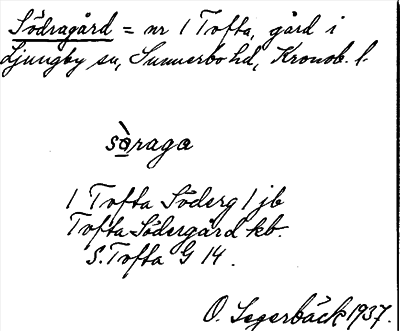 Södragård = nr 1 Tofta, gård i
Ljungby sn, Sunnerbo hd, Kronob. l.
sò̱raga
1 Tofta Söderg 1 jb
Tofta Södergård kb.
S. Tofta G 14.
O. Segerbäck 1937.